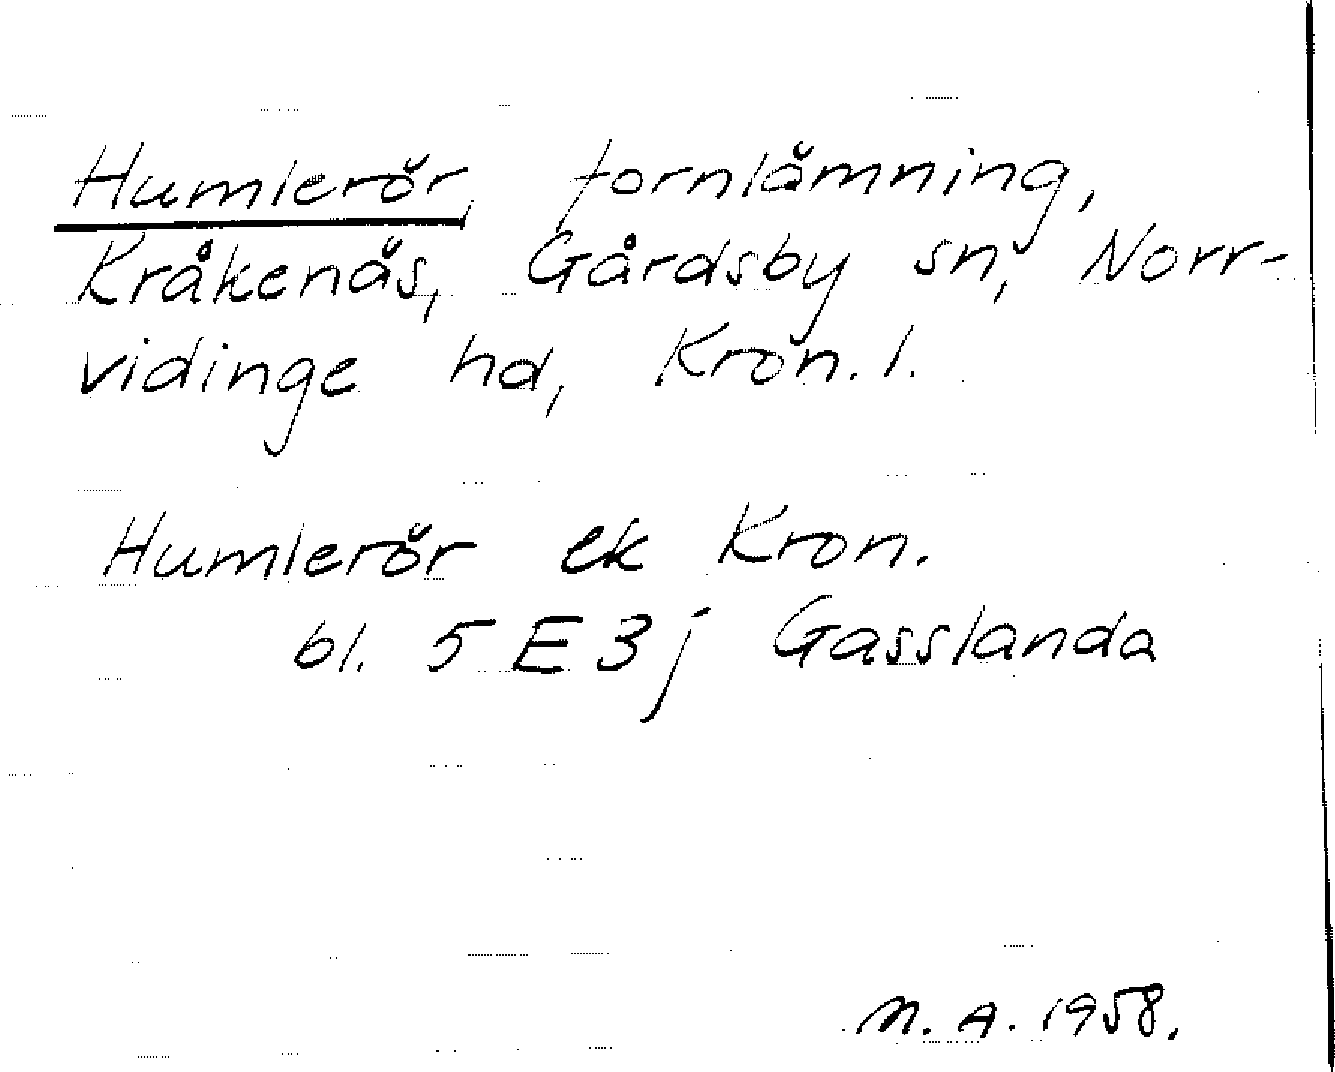 Humlerör, fornlämning,
Kråkenäs, Gårdsby sn, Norr-
vidinge hd, Kron. l.
Humlerör ek Kron.
bl. 5 E 3 j Gasslanda
M. A. 1958.